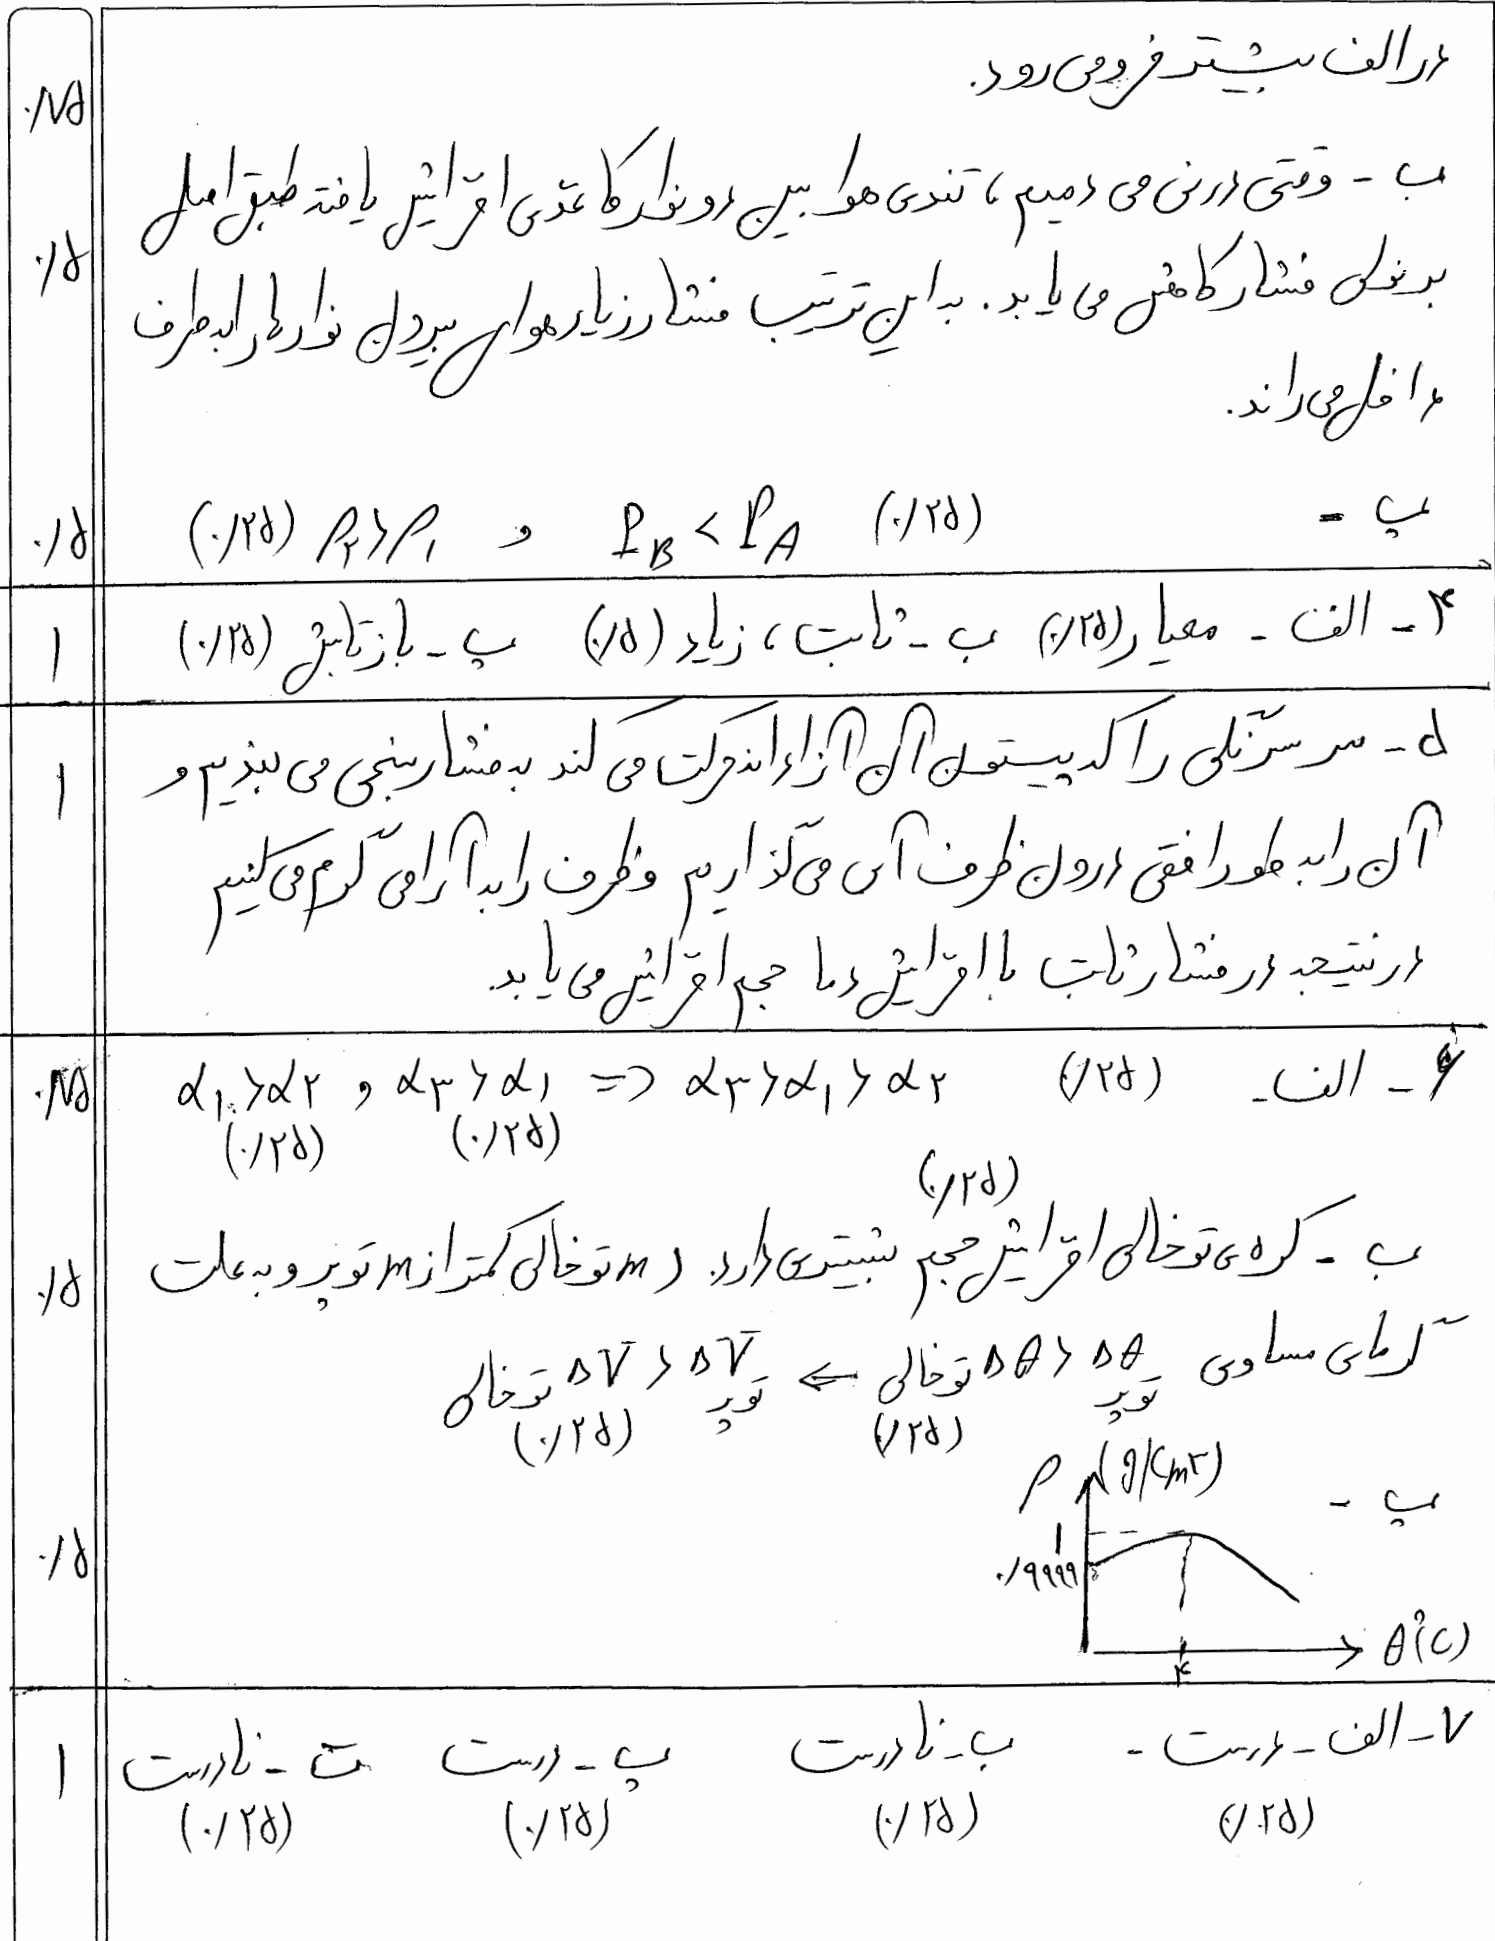 در الف بیشتر فرو می رود.
۰/۷۵
ب - وقتی در نی می دمیم، تندی هوا بین دو نوار کاغذی افزایش یافته طبق اصل
۰/۵
برنولی فشار کاهش می یابد. به این ترتیب فشار زیاد هوای بیرون نوارها را به طرف
داخل می راند.
پ - (۰/۲۵) P_B < P_A و ρ۲ > ρ۱ (۰/۲۵)
۰/۵
۴ - الف - معیار (۰/۲۵) ب - ثابت، زیاد (۰/۵) پ - بازتابش (۰/۲۵)
۱
۵ - سر سرنگی را که پیستون آن آزادانه حرکت می کند به فشارسنجی می بندیم و
۱
آن را به طور افقی درون ظرف آب می گذاریم و ظرف را به آرامی گرم می کنیم
در نتیجه در فشار ثابت با افزایش دما حجم افزایش می یابد.
۶ - الف - (۰/۲۵) α۱ > α۲ و α۳ > α۱ => α۳ > α۱ > α۲
۰/۷۵
(۰/۲۵) (۰/۲۵)
(۰/۲۵)
ب - کره ی توخالی افزایش حجم بیشتری دارد. m توخالی کمتر از m توپر و به علت
۰/۵
گرمای مساوی Δθ توپر < Δθ توخالی ⇐ ΔV توپر < ΔV توخالی
(۰/۲۵) (۰/۲۵)
پ -
ρ (g/cm۳)
۱
۰/۹۹۹۹
۰/۵
θ(°C)
۴
۷ - الف - درست - ب - نادرست پ - درست ت - نادرست
۱
(۰/۲۵) (۰/۲۵) (۰/۲۵) (۰/۲۵)